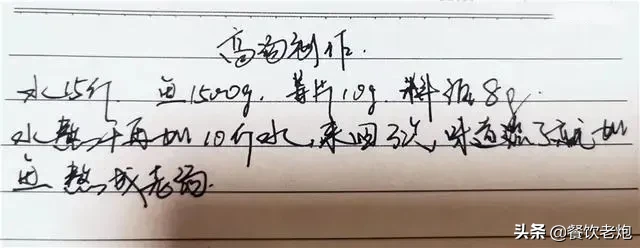 高汤制作.
水15斤. 鱼1500g. 姜片10g. 料酒8g
水熬一半再加10斤水,来回3次,味道淡了就加
鱼 熬成老汤.
头条 @餐饮老炮